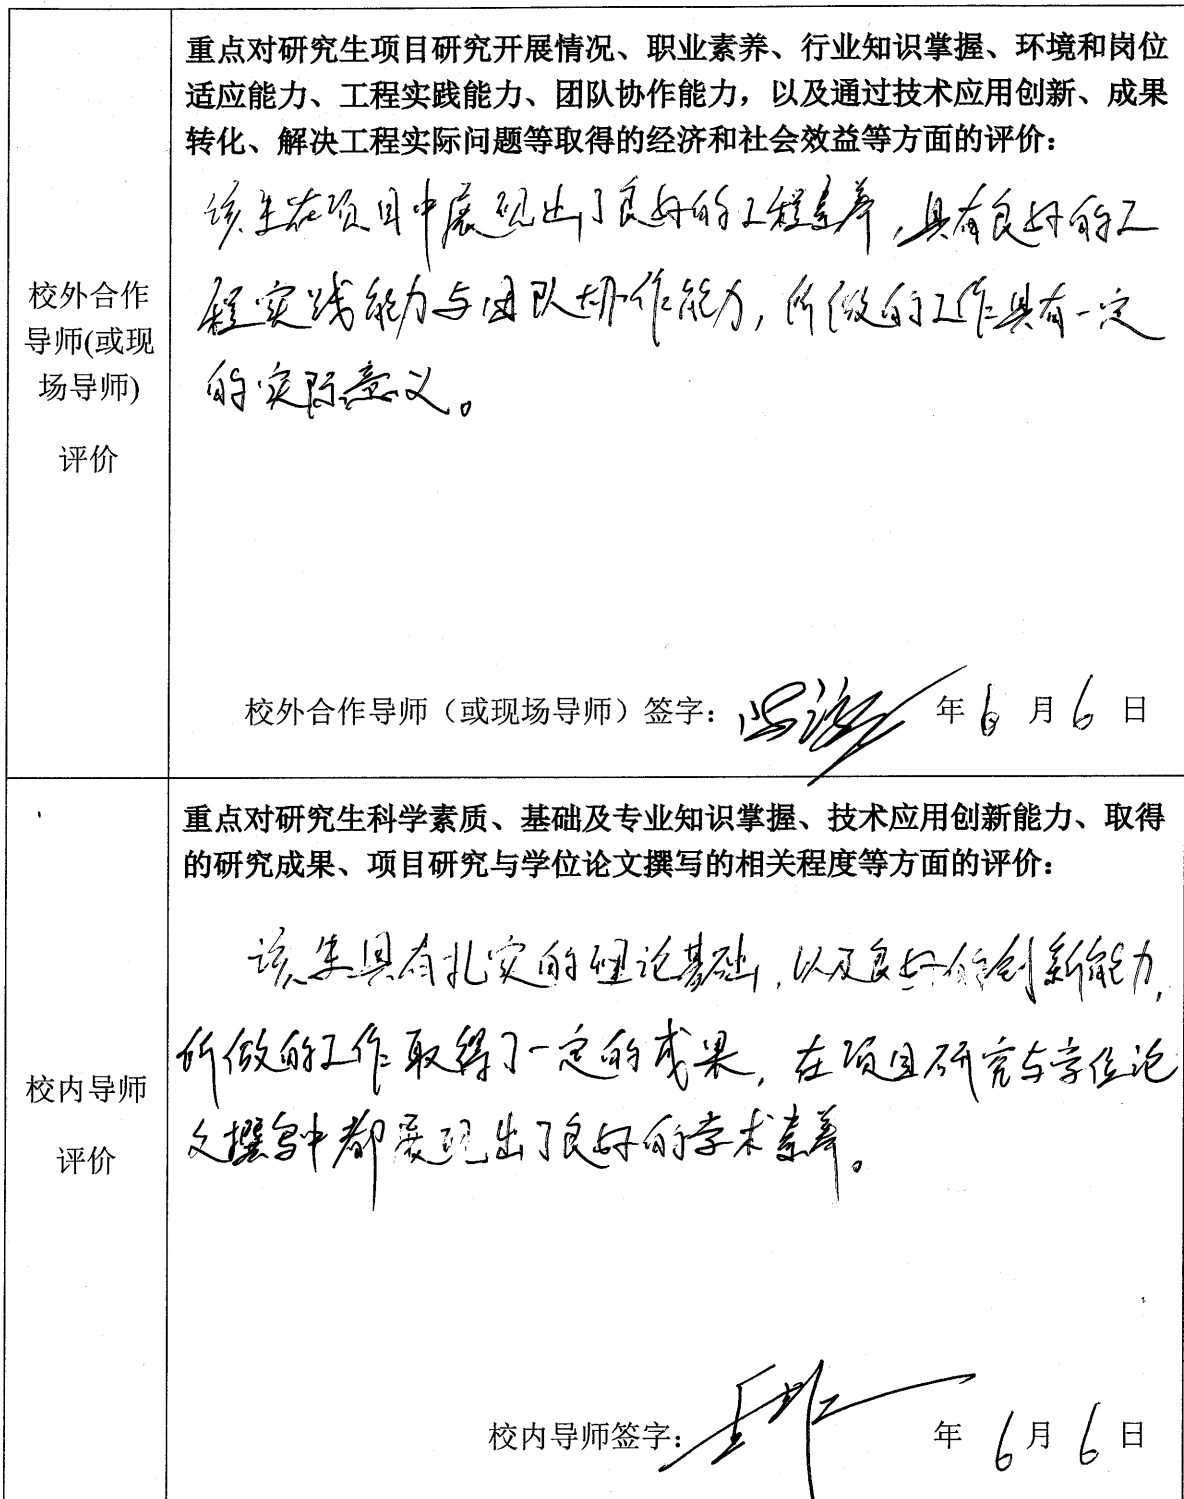 重点对研究生项目研究开展情况、职业素养、行业知识掌握、环境和岗位
适应能力、工程实践能力、团队协作能力，以及通过技术应用创新、成果
转化、解决工程实际问题等取得的经济和社会效益等方面的评价：
该生在项目中展现出了良好的工程素养，具有良好的工
程实践能力与团队协作能力，所做的工作具有一定
的实际意义。
校外合作
导师(或现
场导师)
评价
校外合作导师（或现场导师）签字： 年 6 月 6 日
重点对研究生科学素质、基础及专业知识掌握、技术应用创新能力、取得
的研究成果、项目研究与学位论文撰写的相关程度等方面的评价：
该生具有扎实的理论基础，以及良好的创新能力，
所做的工作取得了一定的成果，在项目研究与学位论
文撰写中都展现出了良好的学术素养。
校内导师
评价
校内导师签字： 年 6 月 6 日